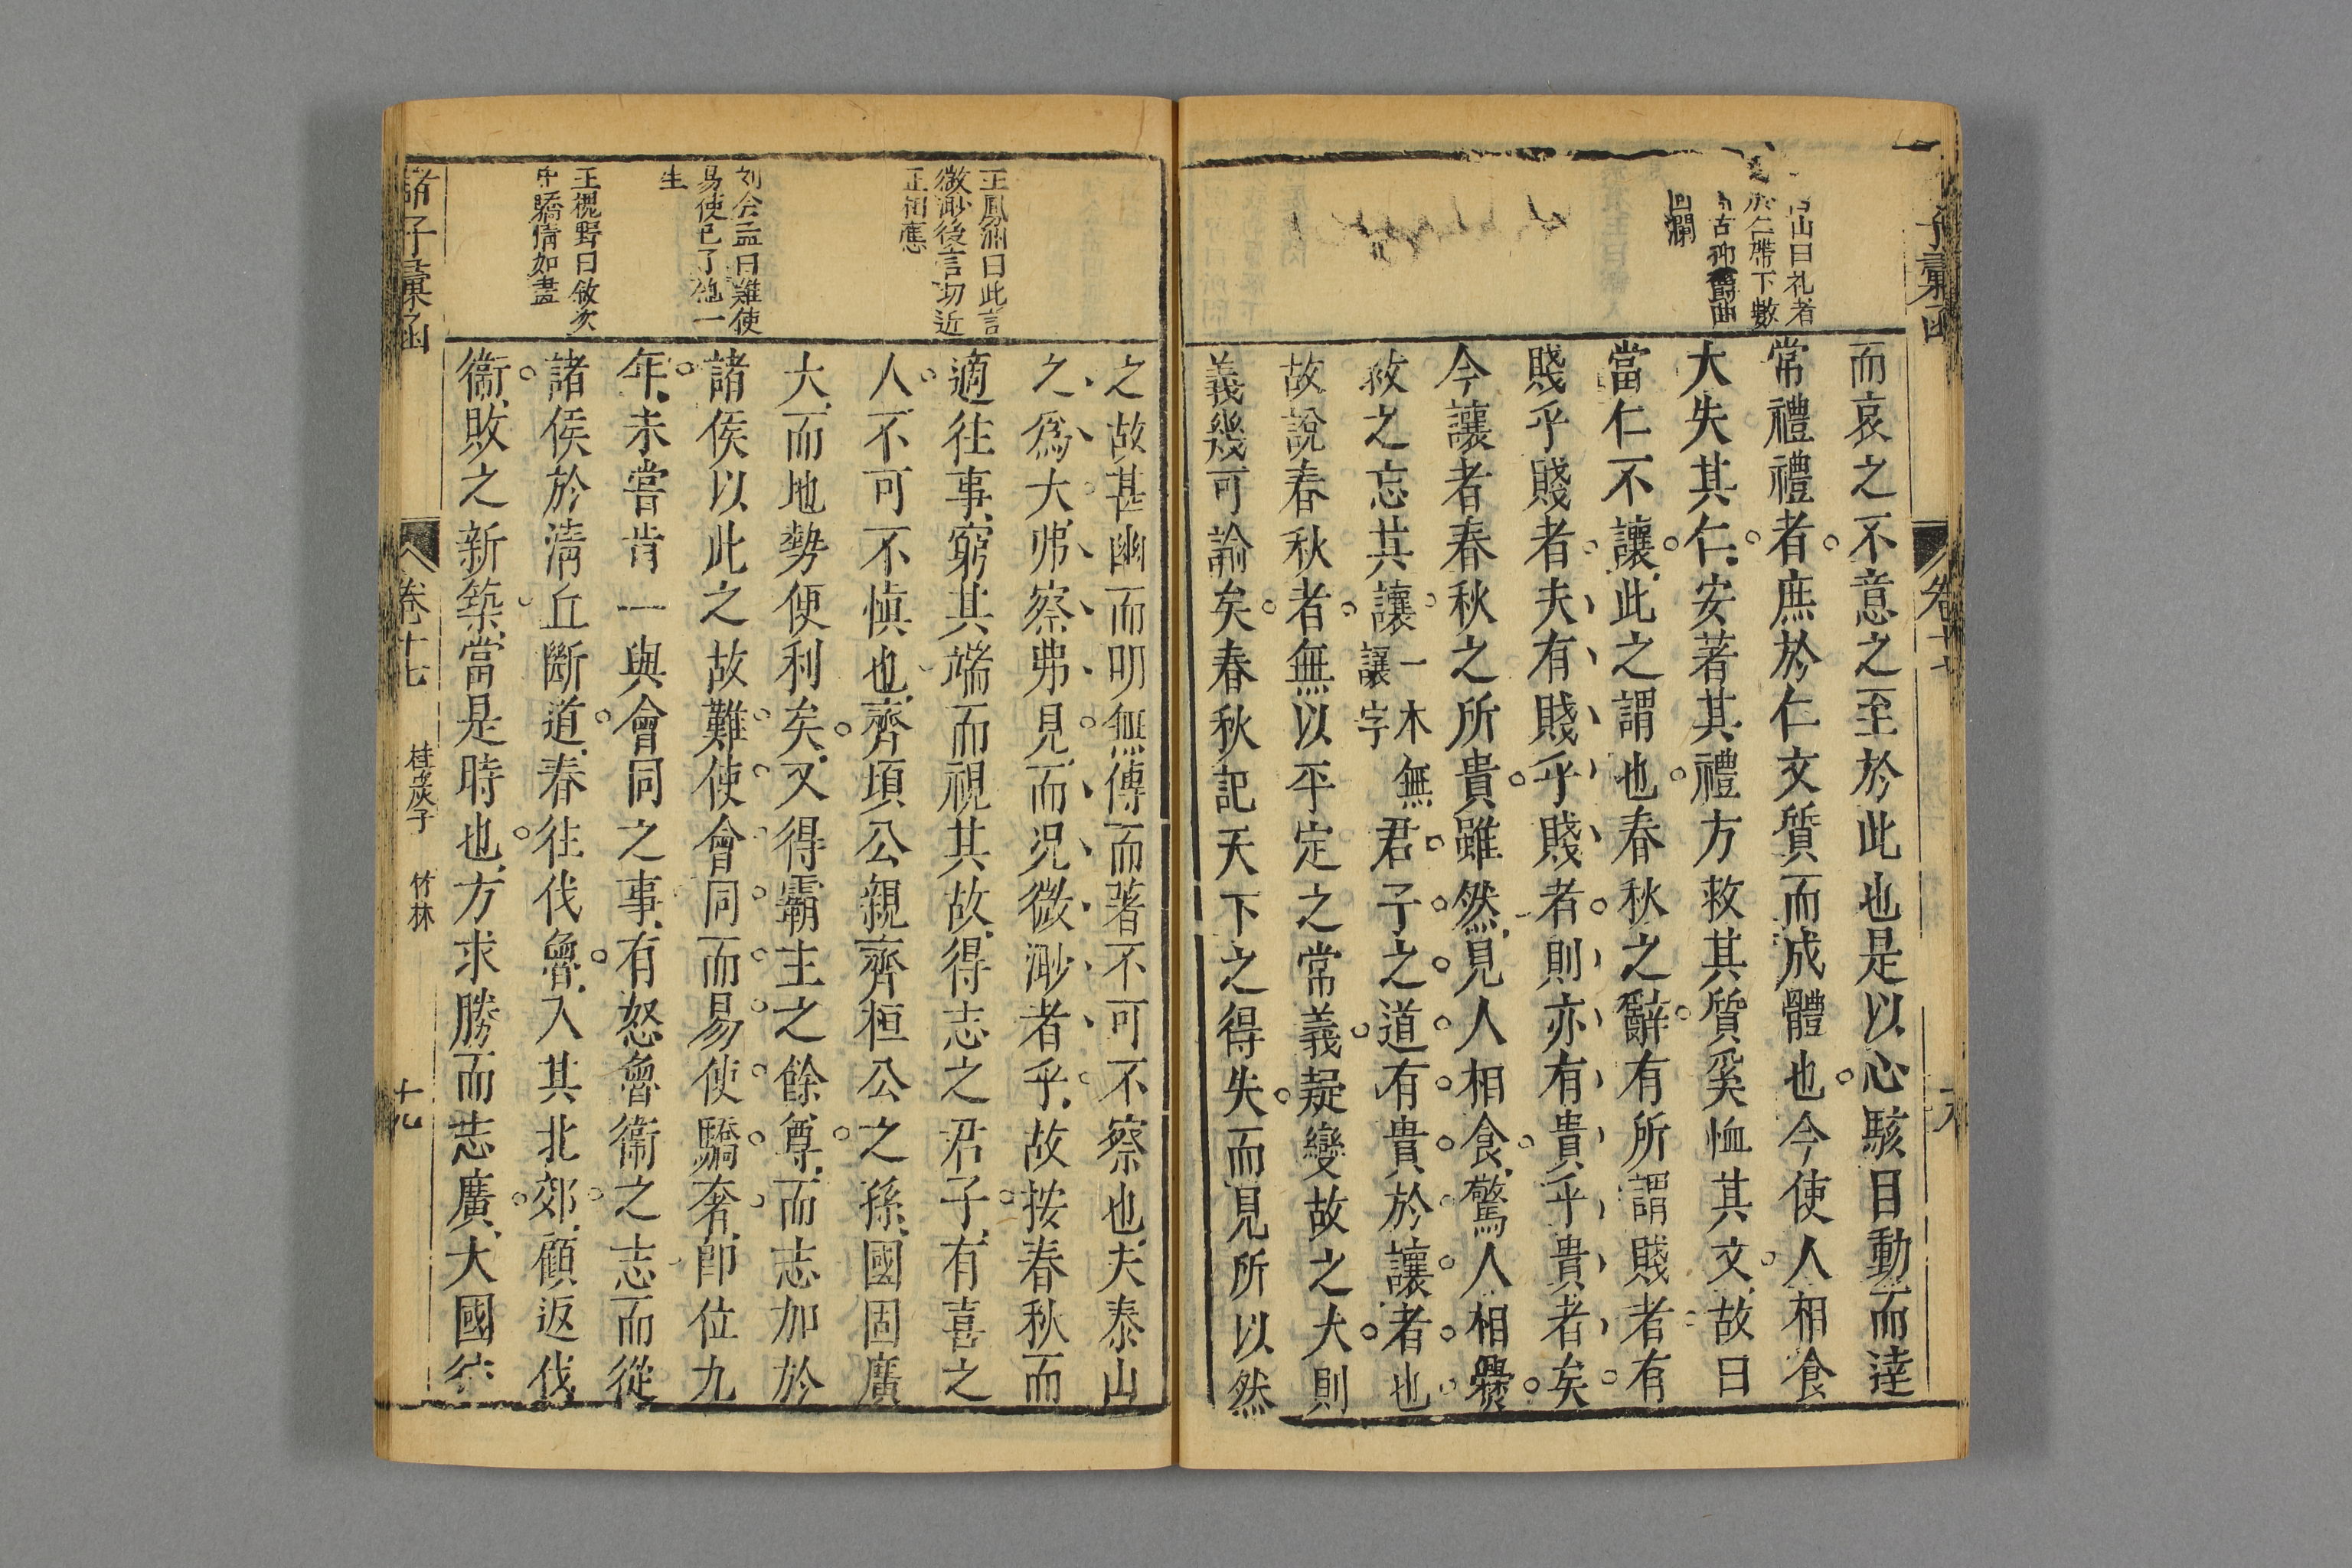 子彙函
卷十七
山曰礼者
仁帶下數
古
瀾
而哀之不意之至於此也是以心駭目動而達
常禮禮者庶於仁文質而成體也今使人相食
大失其仁安著其禮方救其質奚恤其文故曰
當仁不讓此之謂也春秋之辭有所謂賤者有
賤乎賤者夫有賤乎賤者則亦有貴乎貴者矣
今讓者春秋之所貴雖然見人相食驚人相爨
救之忘其讓一木無讓字君子之道有貴於讓者也
故說春秋者無以平定之常義疑變故之大則
義幾可諭矣春秋記天下之得失而見所以然
之故甚幽而明無傳而著不可不察也夫泰山
之爲大弗察弗見而況微渺者乎故按春秋而
適往事窮其端而視其故得志之君子有喜之
人不可不慎也齊頃公親齊桓公之孫國固廣
大而地勢便利矣又得霸主之餘尊而志加於
諸侯以此之故難使會同而易使驕奢即位九
年未嘗肯一與會同之事有怒魯衞之志而從
諸侯於清丘斷道春往伐魯入其北郊顧返伐
衞敗之新築當是時也方求勝而志廣大國徃
王鳳洲曰此言
微渺後言切近
正相應
刘会孟曰難使
易使已了他一
生
王槐野曰敘次
中驕情如畫
諸子彙函
卷十七
桂巖子
竹林
十九